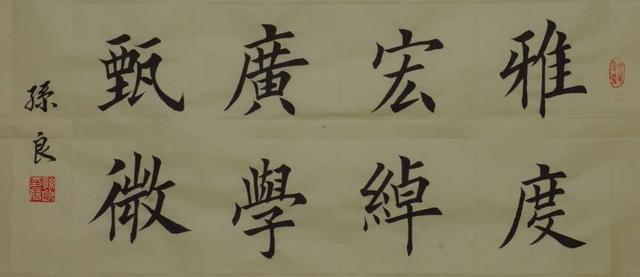 雅度
宏綽
廣學
甄微
孫良